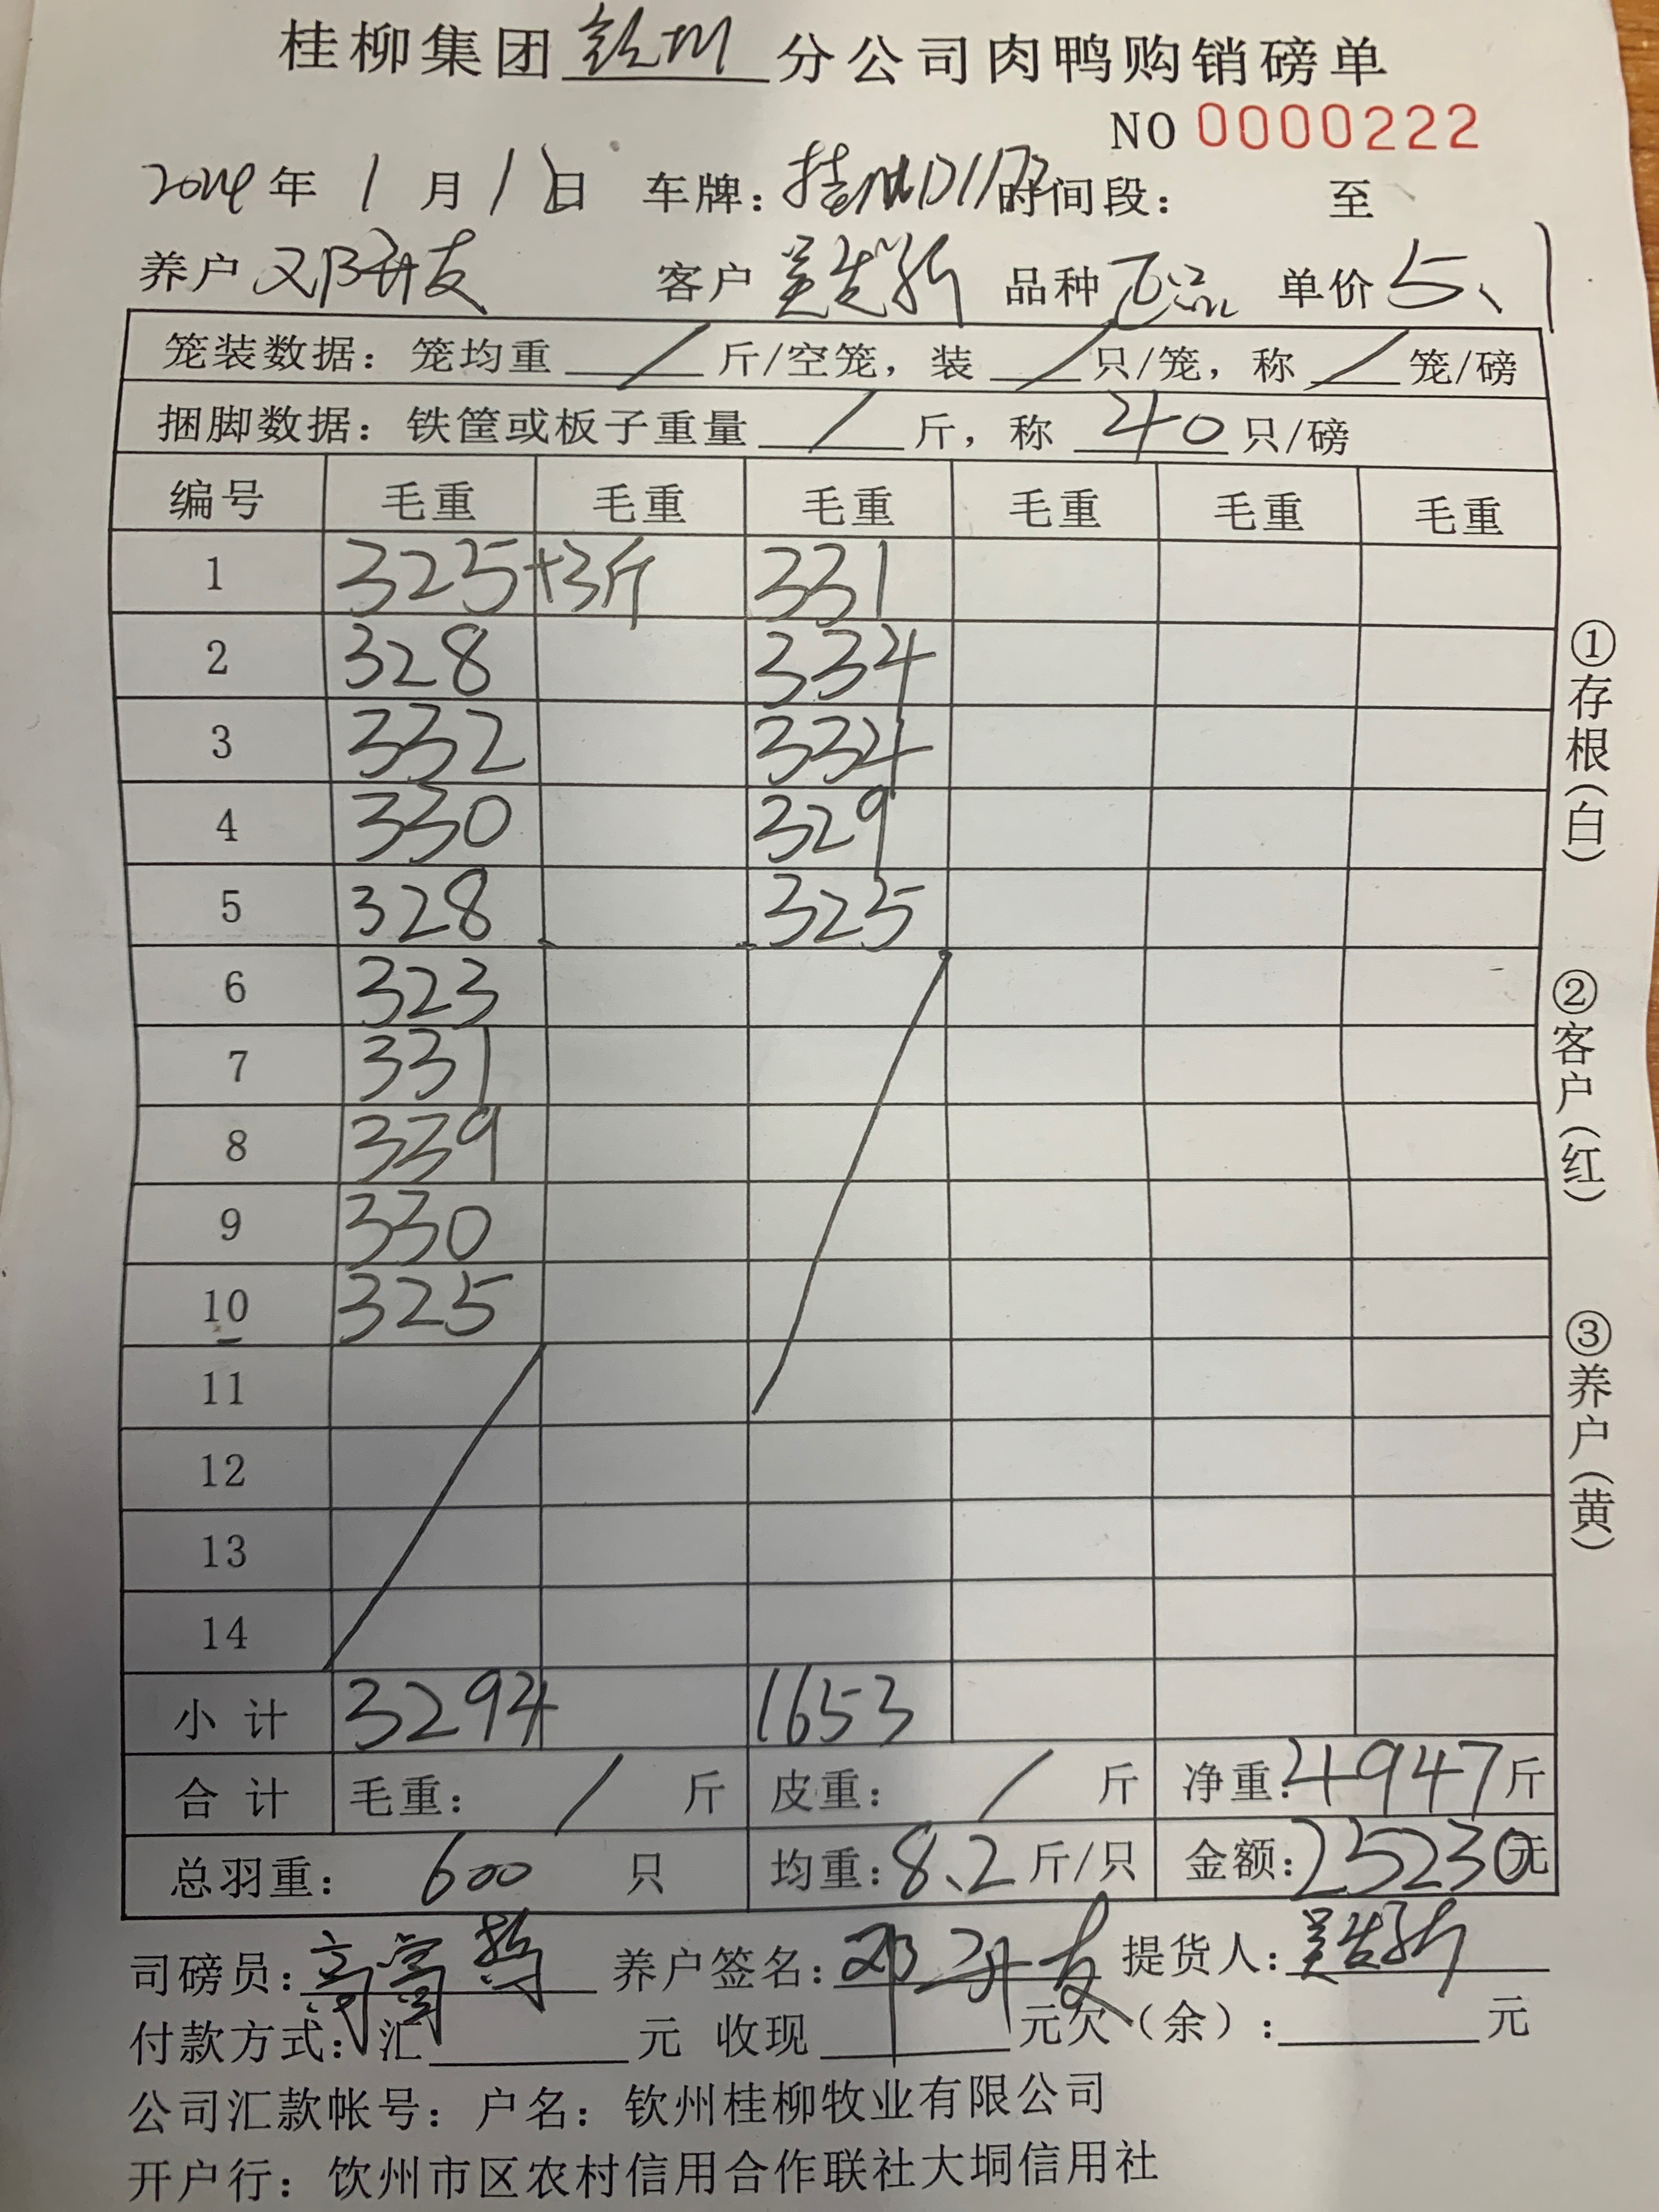 桂柳集团 钦州 分公司肉鸭购销磅单
NO 0000222
2024 年 1 月 1 日 车牌： 时间段： 至
养户 邓升友 客户 吴 品种 单价 5、1
笼装数据：笼均重 / 斤/空笼，装 / 只/笼，称 / 笼/磅
捆脚数据：铁筐或板子重量 / 斤，称 40 只/磅
编号 毛重 毛重 毛重 毛重 毛重 毛重
1 325 +3斤 331
2 328 334
3 332 334
4 330 329
5 328 325
6 323
7 331
8 339
9 330
10 325
11
12
13
14
小计 3294 1653
合计 毛重： / 斤 皮重： / 斤 净重：4947斤
总羽重： 600 只 均重：8、2 斤/只 金额：25230元
司磅员： 养户签名：邓升友 提货人：吴
付款方式：汇 元 收现 元欠（余）： 元
公司汇款帐号：户名：钦州桂柳牧业有限公司
开户行：钦州市区农村信用合作联社大垌信用社
①存根（白）
②客户（红）
③养户（黄）